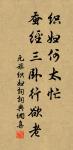 织妇何太忙
蚕经三卧行欲老
元稹织妇词词典网嘉